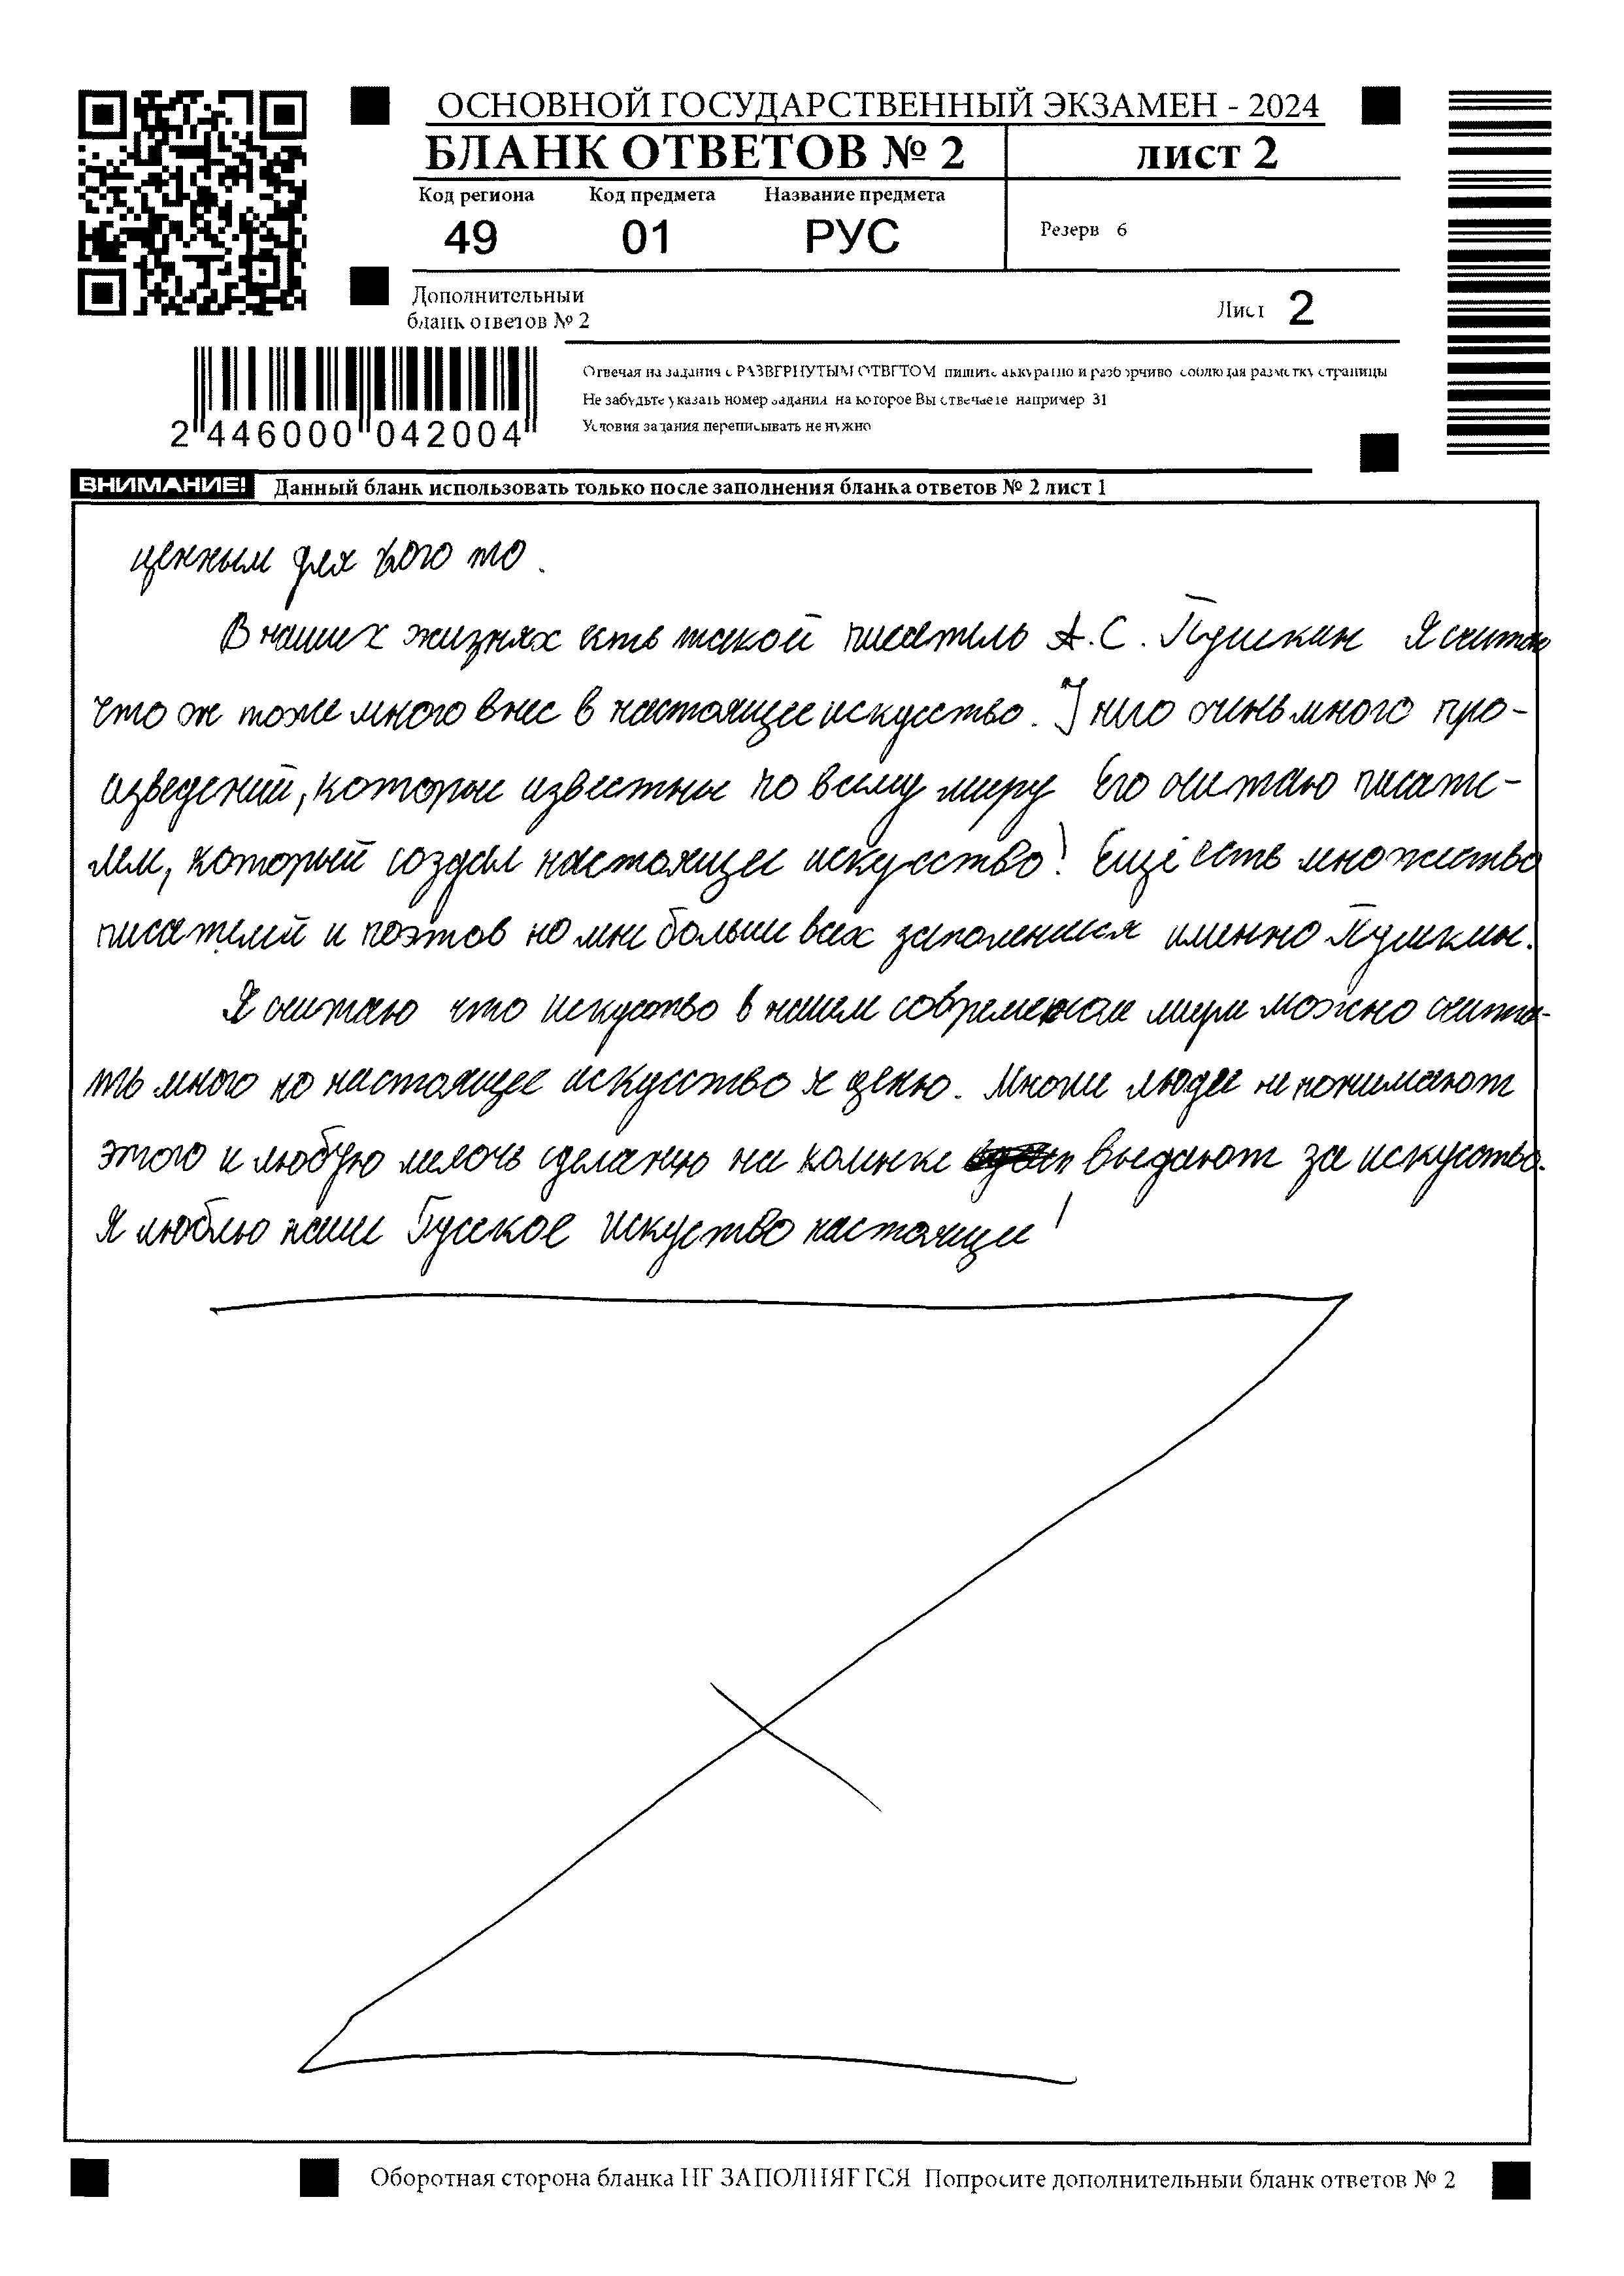 ОСНОВНОЙ ГОСУДАРСТВЕННЫЙ ЭКЗАМЕН - 2024
БЛАНК ОТВЕТОВ № 2
ЛИСТ 2
Код региона Код предмета Название предмета
49 01 РУС
Резерв 6
Дополнительный
бланк ответов № 2
Лист 2
2 446000 042004
Отвечая на задания с РАЗВЕРНУТЫМ ОТВЕТОМ пишите аккуратно и разборчиво соблюдая разметку страницы
Не забудьте указать номер задания на которое Вы отвечаете например 31
Условия задания переписывать не нужно
ВНИМАНИЕ! Данный бланк использовать только после заполнения бланка ответов № 2 лист 1
ценным для кого то.
В наших жизнях есть такой писатель А.С. Пушкин Я считаю
что он тоже много внес в настоящее искусство. У него очень много про-
изведений, которые известны по всему миру Его считаю писате-
лем, который создал настоящее искусство! Ещё есть множество
писателей и поэтов но мне больше всех запомнился именно Пушкин.
Я считаю что искуство в нашем современом мире можно счита-
ть много но настоящее искусство я ценю. Многие люди не понимают
этого и любую мелочь сделаную на коленке выдают за искуство.
Я люблю наше Русское искуство настоящее!
Оборотная сторона бланка НЕ ЗАПОЛНЯЕТСЯ Попросите дополнительный бланк ответов № 2